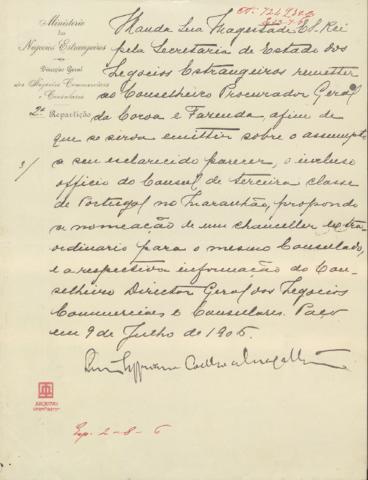 Ministerio
dos
Negocios Estrangeiros
Direcção Geral
dos Negocios Commerciaes
e Consulares
2ª Repartição
3/
Manda Sua Magestade El-Rei
pela Secretaria de Estado dos
Negocios Estrangeiros remetter
ao Conselheiro Procurador Geral
da Coroa e Fazenda, afim de
que se sirva emittir sobre o assumpto
o seu esclarecido parecer, o incluso
officio do Consul de terceira classe
de Portugal no Maranhão, propondo
a nomeação de um chanceller extra-
ordinario para o mesmo Consulado,
e a respectiva informação do Con-
selheiro Director Geral dos Negocios
Commerciaes e Consulares. Paço
em 9 de Julho de 1906.
Exp. 2-8-6